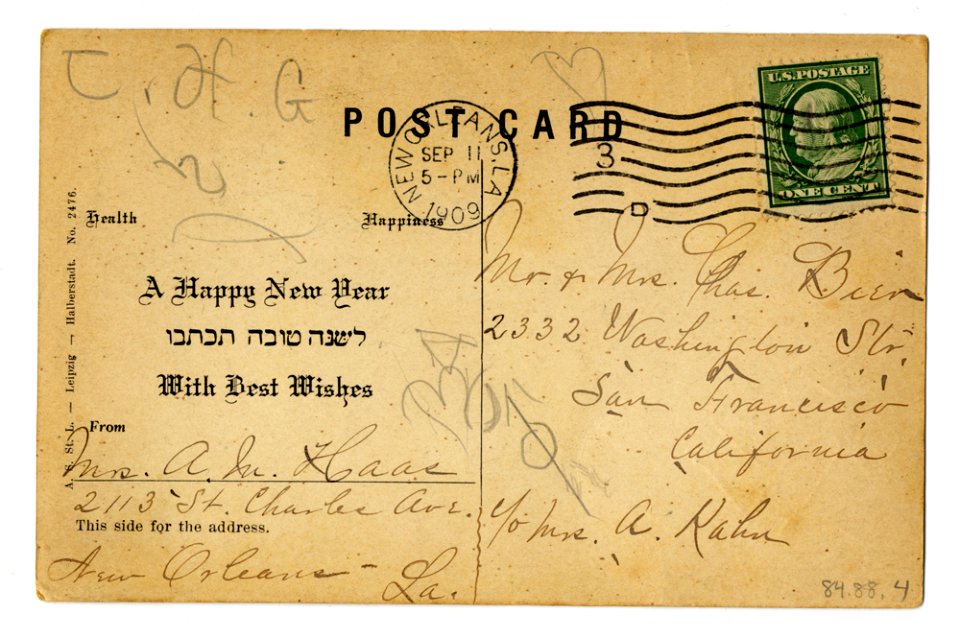 U.S.POSTAGE
ONE CENT
POST CARD
NEW ORLEANS, LA
SEP 11
5-PM
1909
3
D
Health
Happiness
A Happy New Year
לשנה טובה תכתבו
With Best Wishes
From
Mrs. A. M. Haas
2113 St. Charles Ave.
This side for the address.
New Orleans -
La.
A. & St. L. — Leipzig — Halberstadt. No. 2476.
Mr. & Mrs. Chas. Bier
2332 Washington Str.
San Francisco
California
c/o Mrs. A. Kahn
84.88.4